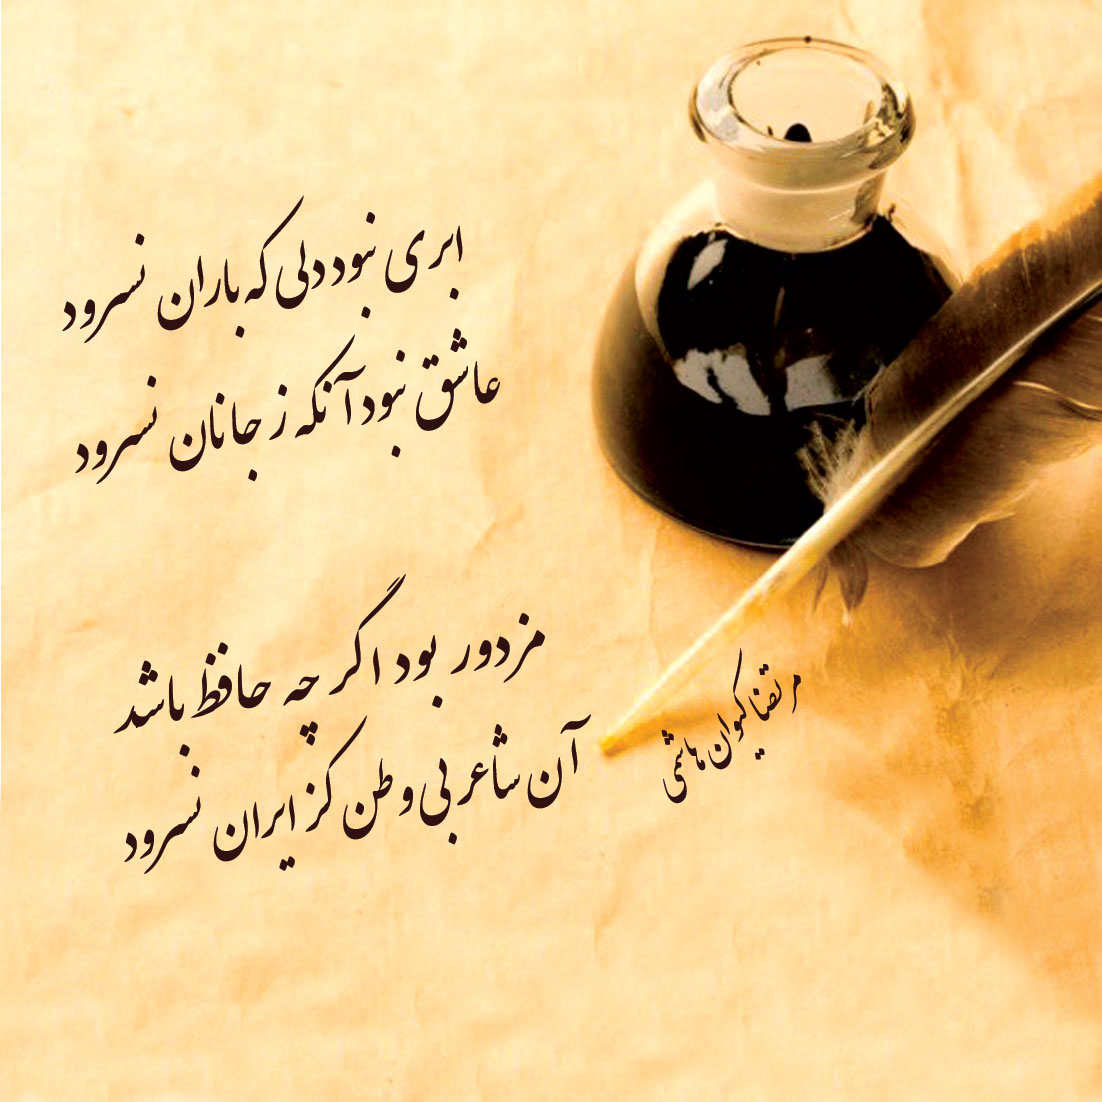 ابری نبود دلی که باران نسرود
عاشق نبود آنکه ز جانان نسرود
مزدور بود اگر چه حافظ باشد
آن شاعر بی وطن کز ایران نسرود
مرتضا کیوان هاشمی